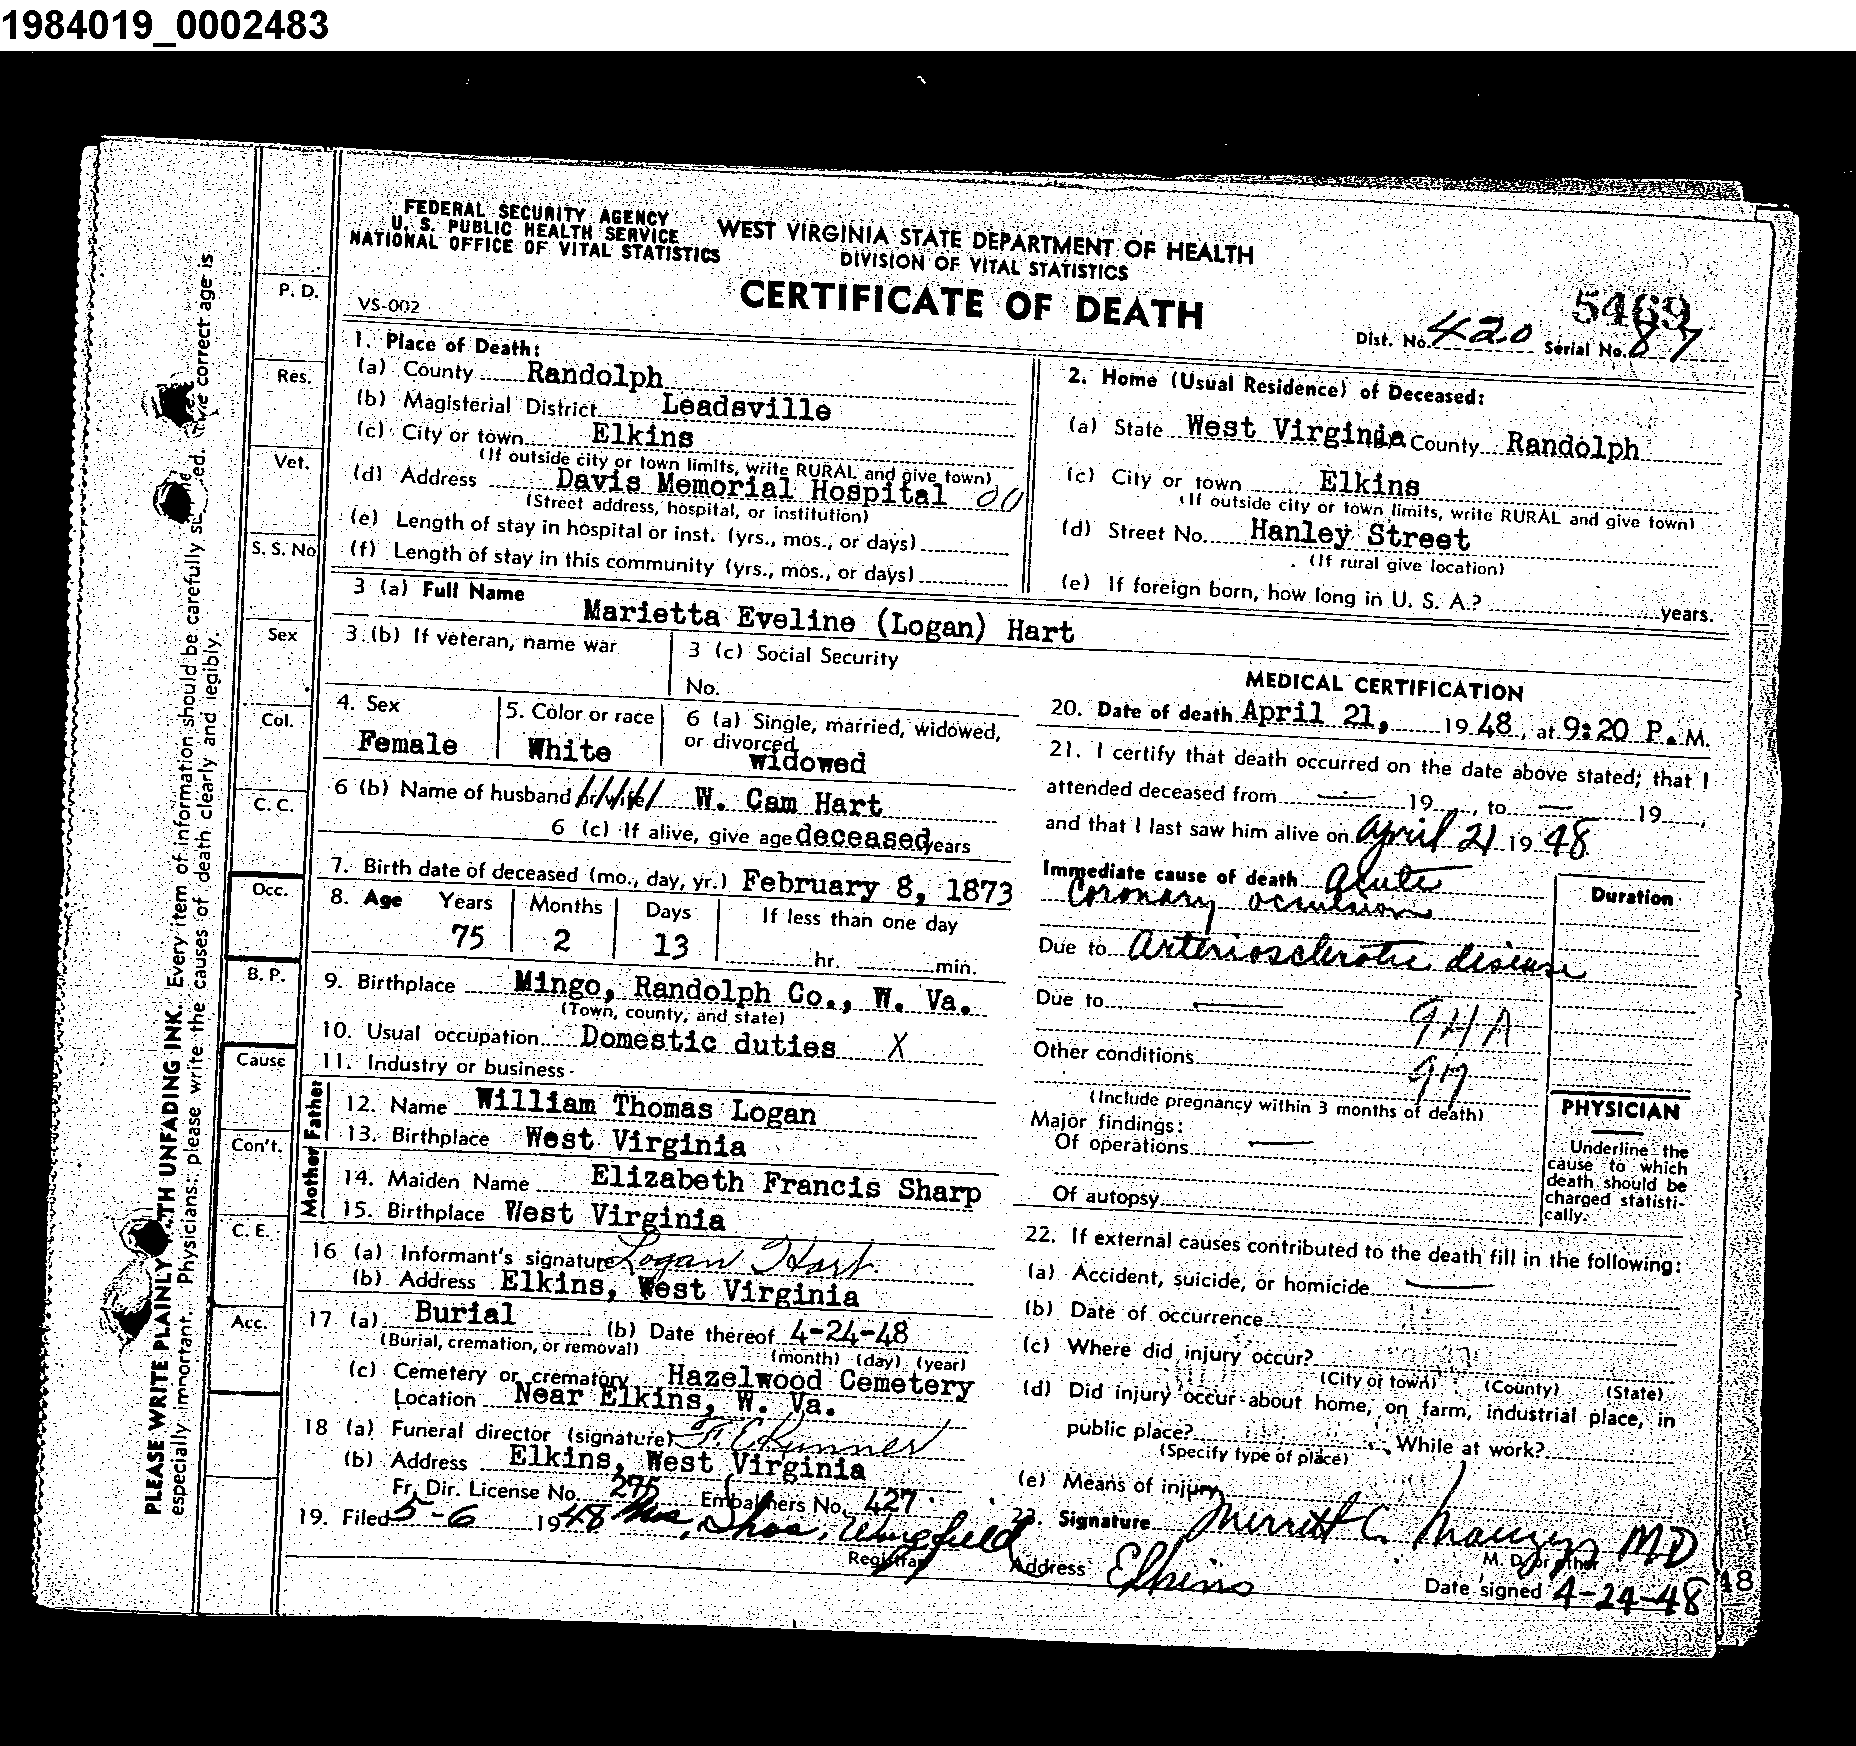 1984019_0002483
FEDERAL SECURITY AGENCY
U. S. PUBLIC HEALTH SERVICE
NATIONAL OFFICE OF VITAL STATISTICS
WEST VIRGINIA STATE DEPARTMENT OF HEALTH
DIVISION OF VITAL STATISTICS
VS-002
CERTIFICATE OF DEATH
5469
Dist. No. 420 Serial No. 87
1. Place of Death:
(a) County Randolph
(b) Magisterial District Leadsville
(c) City or town Elkins
(If outside city or town limits, write RURAL and give town)
(d) Address Davis Memorial Hospital 00
(Street address, hospital, or institution)
(e) Length of stay in hospital or inst. (yrs., mos., or days)
(f) Length of stay in this community (yrs., mos., or days)
2. Home (Usual Residence) of Deceased:
(a) State West Virginia County Randolph
(c) City or town Elkins
(If outside city or town limits, write RURAL and give town)
(d) Street No. Hanley Street
(If rural give location)
(e) If foreign born, how long in U. S. A.? years.
3 (a) Full Name Marietta Eveline (Logan) Hart
3 (b) If veteran, name war
3 (c) Social Security
No.
4. Sex
Female
5. Color or race
White
6 (a) Single, married, widowed,
or divorced
widowed
6 (b) Name of husband or wife W. Cam Hart
6 (c) If alive, give age deceased years
7. Birth date of deceased (mo., day, yr.) February 8, 1873
8. Age Years Months Days If less than one day
75 2 13 hr. min.
9. Birthplace Mingo, Randolph Co., W. Va.
(Town, county, and state)
10. Usual occupation Domestic duties X
11. Industry or business
Father
12. Name William Thomas Logan
13. Birthplace West Virginia
Mother
14. Maiden Name Elizabeth Francis Sharp
15. Birthplace West Virginia
16 (a) Informant's signature Logan Hart
(b) Address Elkins, West Virginia
17 (a) Burial (b) Date thereof 4-24-48
(Burial, cremation, or removal) (month) (day) (year)
(c) Cemetery or crematory Hazelwood Cemetery
Location Near Elkins, W. Va.
18 (a) Funeral director (signature) F. E. Runner
(b) Address Elkins, West Virginia
Fr. Dir. License No. 275 Embalmers No. 427
19. Filed 5-6 1948 Mrs. Thos. Wingfield
Registrar
MEDICAL CERTIFICATION
20. Date of death April 21, 1948, at 9:20 P.M.
21. I certify that death occurred on the date above stated; that I
attended deceased from — 19 , to — 19 ,
and that I last saw him alive on April 21 1948
Immediate cause of death Acute
Coronary occulsion
Duration
Due to Arteriosclerotic disease
Due to —
94A
Other conditions
97
(Include pregnancy within 3 months of death)
Major findings:
Of operations —
Of autopsy
PHYSICIAN
Underline the
cause to which
death should be
charged statisti-
cally.
22. If external causes contributed to the death fill in the following:
(a) Accident, suicide, or homicide —
(b) Date of occurrence
(c) Where did injury occur?
(City or town) (County) (State)
(d) Did injury occur about home, on farm, industrial place, in
public place? While at work?
(Specify type of place)
(e) Means of injury
23. Signature Merritt C. MD
M. D. or other
Address Elkins Date signed 4-24-48
48
P. D.
Res.
Vet.
S. S. No
Sex
Col.
C. C.
Occ.
B. P.
Cause
Con't.
C. E.
Acc.
PLEASE WRITE PLAINLY WITH UNFADING INK. Every item of information should be carefully correct age is
especially important. Physicians: please write the causes of death clearly and legibly.